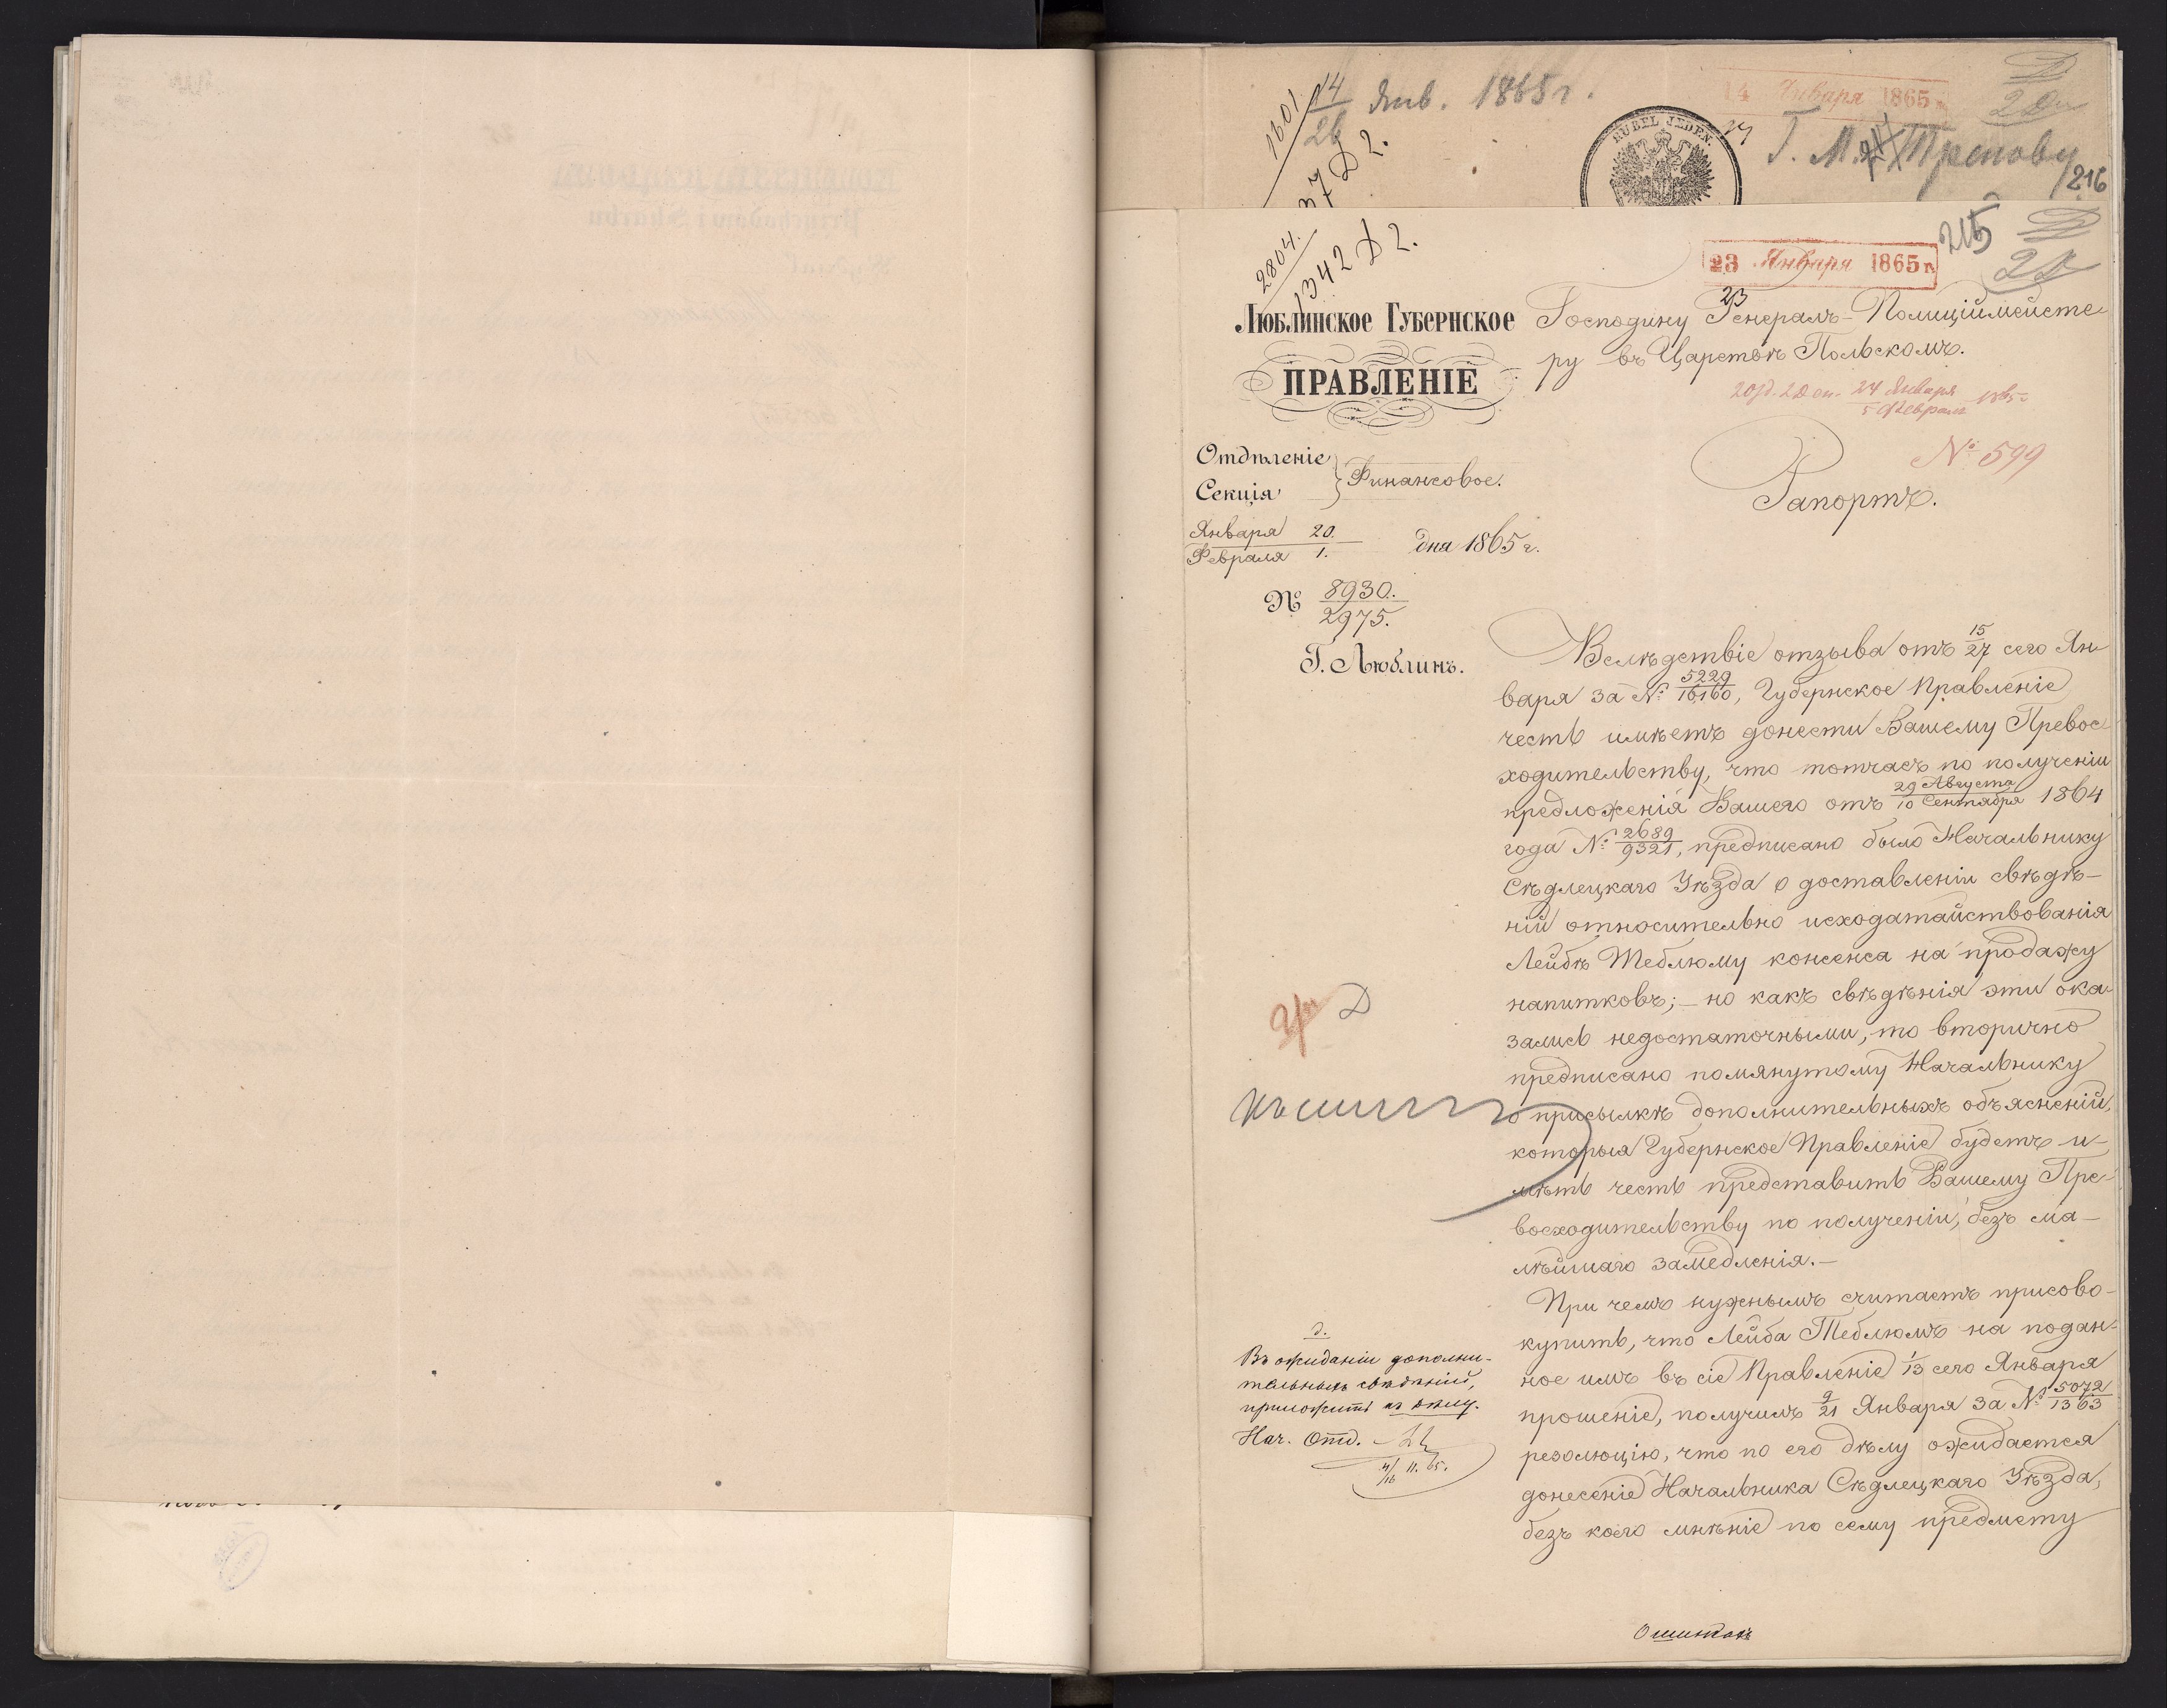 1601
14/26 Янв. 1865 г.
37 D 2.
14 Января 1865 г.
2 D
RUBEL JEDEN.
Г. М. Трепову
216
215
2804.
1342 D 2.
23 Января 1865 г.
23
2 D
Люблинское Губернское
ПРАВЛЕНІЕ
Господину Генералъ-Полиціймейсте
ру въ Царствѣ Польскомъ.
24 Января
5 Февраля 1865 г.
№ 599
Отдѣленіе
Секція
Финансовое.
Рапортъ.
Января 20.
Февраля 1. дня 1865 г.
№ 8930./2975.
Г. Люблинъ.
Вслѣдствіе отзыва отъ 15/27 сего Ян
варя за № 5229/16160, Губернское Правленіе
честь имѣетъ донести Вашему Превос
ходительству, что тотчасъ по полученіи
предложенія Вашего отъ 29 Августа/10 Сентября 1864
года № 2689/9321, предписано было Начальнику
Сѣдлецкаго Уѣзда о доставленіи свѣдѣ-
ній относительно исходатайствованія
Лейбѣ Теблюму консенса на продажу
напитковъ; - но какъ свѣдѣнія эти ока
зались недостаточными, то вторично
предписано помянутому Начальнику
о присылкѣ дополнительныхъ объясненій,
которыя Губернское Правленіе будетъ и-
мѣть честь представить Вашему Пре-
восходительству по полученіи, безъ ма-
лѣйшаго замедленія. -
При чемъ нужнымъ считаетъ присово-
купить, что Лейба Теблюмъ на подан-
ное имъ въ сіе Правленіе 1/13 сего Января
прошеніе, получилъ 9/21 Января за № 5072/1363
резолюцію, что по его дѣлу ожидается
донесеніе Начальника Сѣдлецкаго Уѣзда,
безъ коего мнѣніе по сему предмету
D
Въ ожиданіи дополни-
тельныхъ свѣдѣній,
приложить къ дѣлу.
Нач. Отд.
4/16 II. 65.